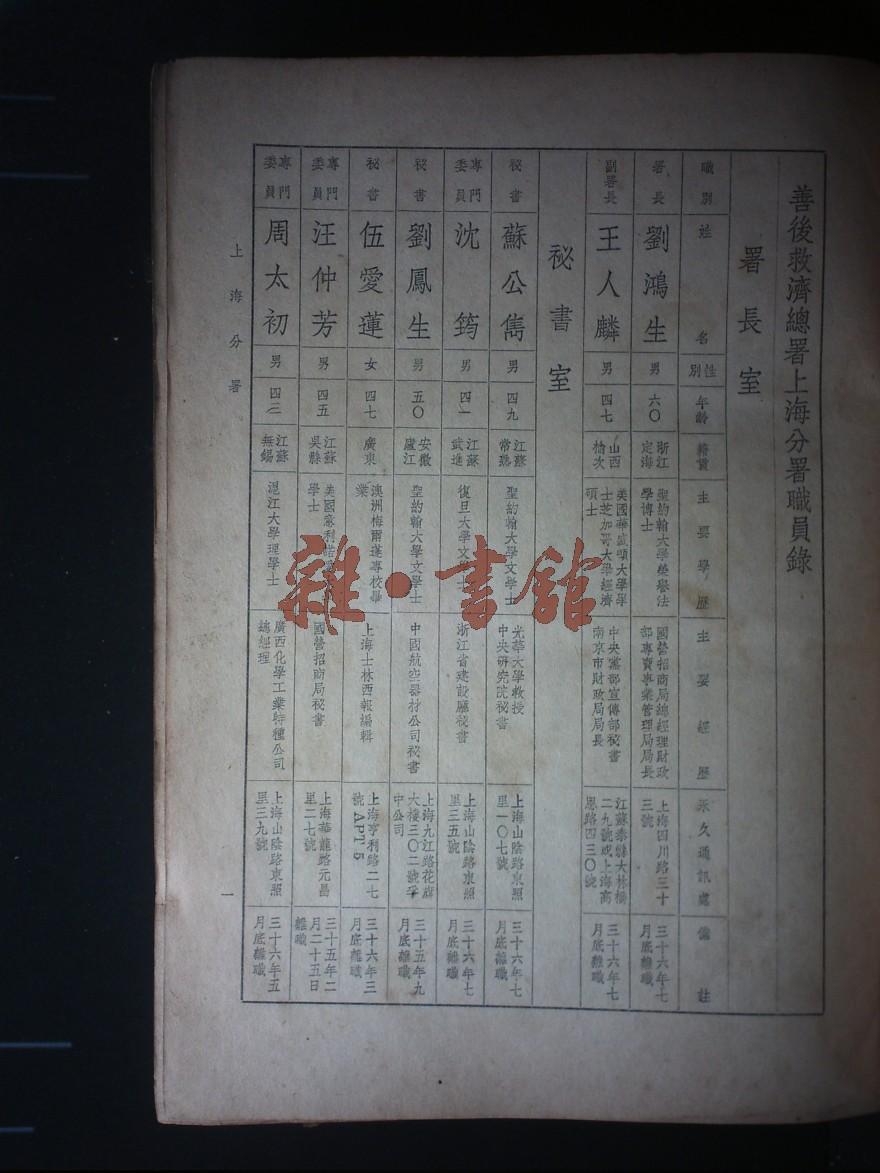 善後救濟總署上海分署職員錄
署長室
職別 姓名 性別 年齡 籍貫 主要學歷 主要經歷 永久通訊處 備註
署長 劉鴻生 男 六〇 浙江定海 聖約翰大學榮譽法學博士 國營招商局總經理財政部專賣事業管理局局長 上海四川路三十三號 三十六年七月底離職
副署長 王人麟 男 四七 山西榆次 美國華盛頓大學學士芝加哥大學經濟碩士 中央黨部宣傳部秘書南京市財政局局長 江蘇泰縣大林橋二九號或上海高恩路四三〇號 三十六年七月底離職
祕書室
秘書 蘇公雋 男 四九 江蘇常熟 聖約翰大學文學士 光華大學教授中央研究院秘書 上海山陰路東照里一〇七號 三十六年七月底離職
專門委員 沈筠 男 四一 江蘇武進 復旦大學文學士 浙江省建設廳秘書 上海山陰路東照里三五號 三十六年七月底離職
秘書 劉鳳生 男 五〇 安徽廬江 聖約翰大學文學士 中國航空器材公司秘書 上海九江路花旗大樓三〇二號孚中公司 三十五年九月底離職
秘書 伍愛蓮 女 四七 廣東 澳洲梅爾蓬專校畢業 上海士林西報編輯 上海亨利路二七號 APT 5 三十六年三月底離職
專門委員 汪仲芳 男 四五 江蘇吳縣 美國意利諾 學士 國營招商局秘書 上海華龍路元昌里二七號 三十五年二月二十五日離職
專門委員 周太初 男 四三 江蘇無錫 滬江大學理學士 廣西化學工業特種公司總經理 上海山陰路東照里三九號 三十六年五月底離職
上海分署
一
雜·書館